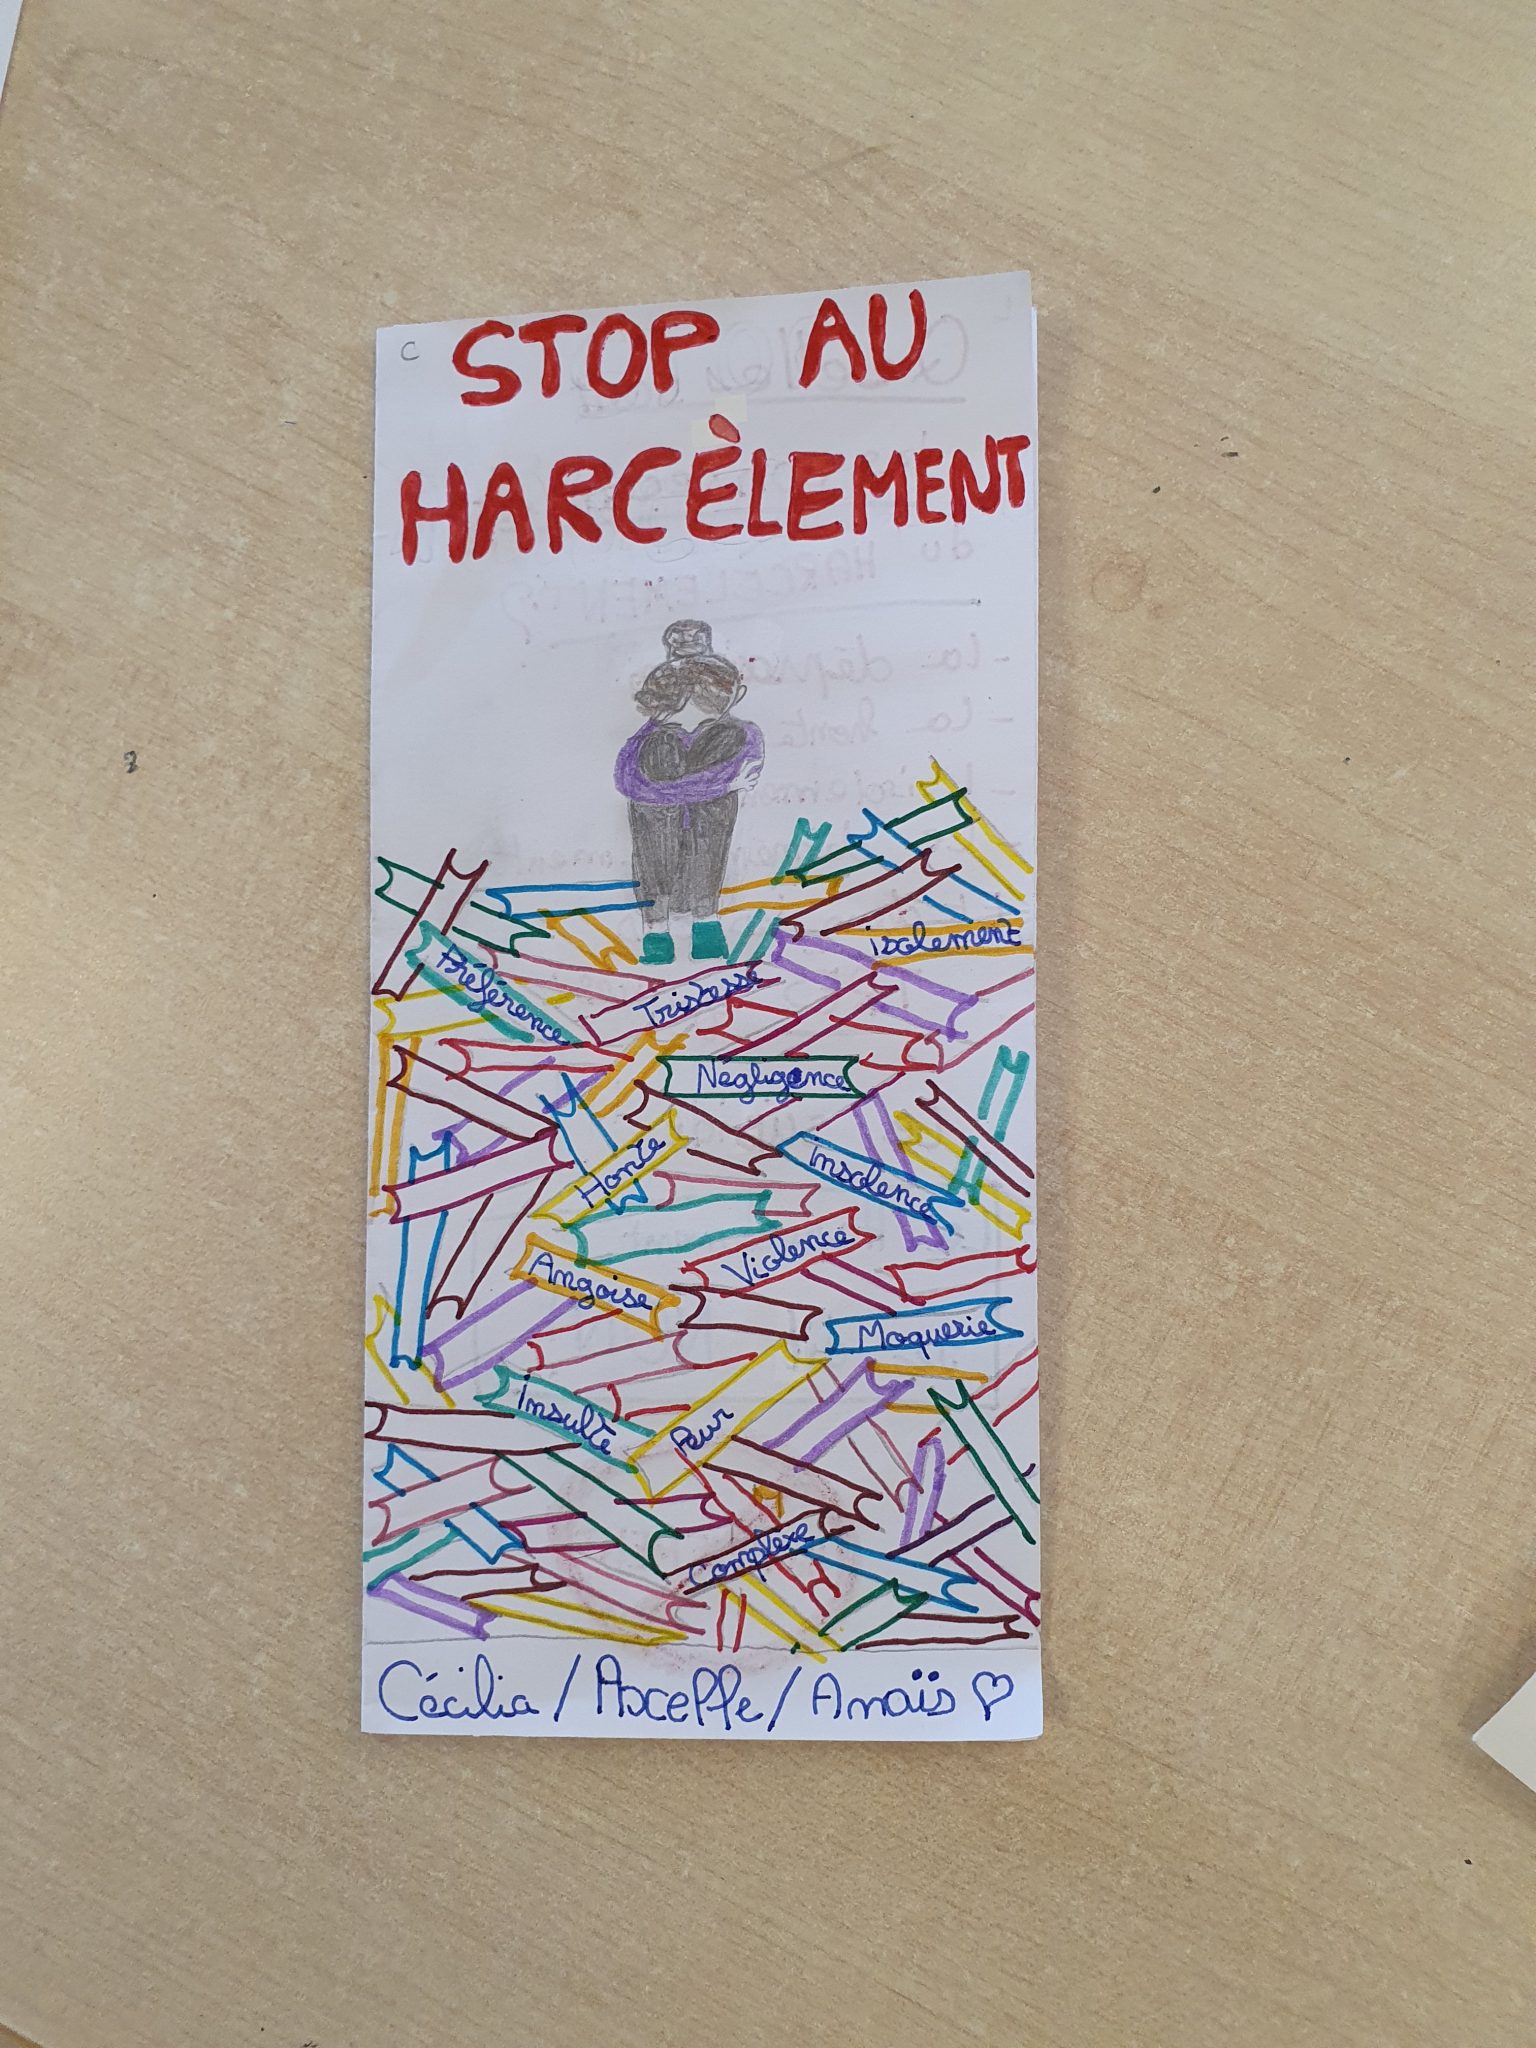 C
STOP AU
HARCÈLEMENT
isolement
Préférence
Tristesse
Négligence
Honte
insolence
Violence
Angoise
Moquerie
Insulte
Peur
Complexe
Cécilia / Axelle / Anaïs ♡